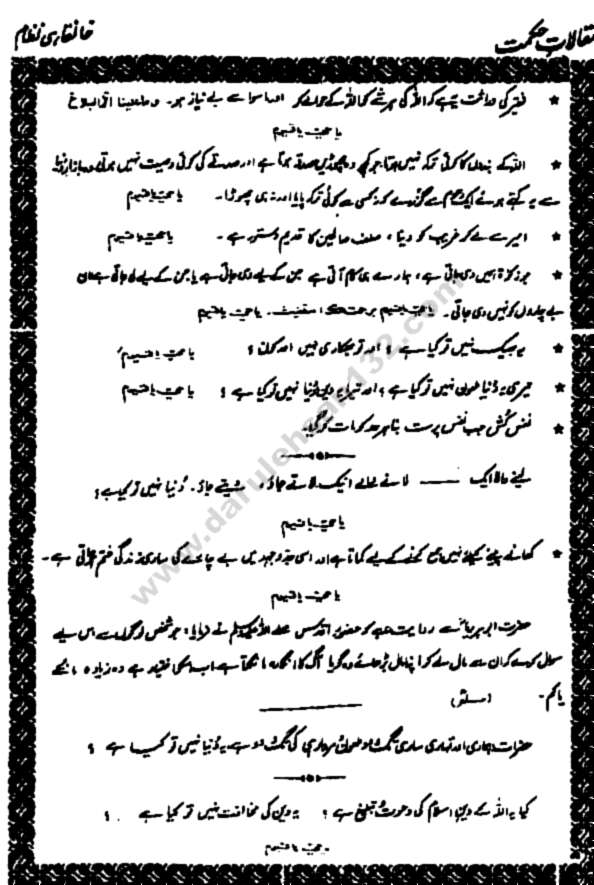 مقالات حکمت
خانقاہی نظام
* فقیر کی وراثت یہ ہے کہ اللہ کی ہر شے کو اللہ کے حوالے کر اور ماسوا سے بے نیاز ہو۔ وما علینا الا البلاغ
یا حیّ یا قیوم
* اللہ کے بندوں کا کوئی ترکہ نہیں ہوتا، جو کچھ وہ چھوڑیں صدقہ ہوتا ہے اور صدقے کی کوئی وصیت نہیں ہوتی وہ بازار دنیا
سے یہ کہتے ہوئے گزرے کہ نہ کسی سے کوئی ترکہ پایا اور نہ ہی چھوڑا۔ یا حیّ یا قیوم
* امیر سے لے کر غریب کو دینا، سلف صالحین کا قدیم دستور ہے۔ یا حیّ یا قیوم
* جو زکوٰۃ ہمیں دی جاتی ہے، ہمارے ہی کام آتی ہے جن کے لیے دی جاتی ہے یا جن کے لیے لی جاتی ہے ان
بے چاروں کو نہیں دی جاتی۔ یا حیّ یا قیوم برحمتک استغیث۔ یا حیّ یا قیوم
* یہ بھیک نہیں تو کیا ہے؟ اور تو بھکاری نہیں اور کون؟ یا حیّ یا قیوم
* تیری یہ دُنیا دین نہیں تو کیا ہے؟ اور تیرا یہ دین دُنیا نہیں تو کیا ہے؟ یا حیّ یا قیوم
* نفس کُش جب نفس پرست بنا ہر حد کو مات کر گیا۔
لینے والا ایک لانے والے انیک لاتے جاؤ، دیتے جاؤ۔ دُنیا نہیں تو کیا ہے؟
یا حیّ یا قیوم
* کھانے پینے کیلئے نہیں جمع کرنے کے لیے کماتا ہے اور اسی جدوجہد میں بے چارے کی ساری زندگی ختم ہو جاتی ہے۔
یا حیّ یا قیوم
حضرت ابوہریرہؓ سے روایت ہے کہ حضور اقدس صلی اللہ علیہ وسلم نے فرمایا: جو شخص لوگوں سے اس لیے
سوال کرے کہ ان سے مال لے کر اپنا مال بڑھائے وہ گویا آگ کا انگارہ مانگتا ہے اب اسکا اختیار ہے وہ زیادہ مانگے
یا کم۔ (مسلم)
حضرات ہماری اور تمہاری ساری تگ و دو حصولِ سرداری کی تگ و دو ہے، یہ دُنیا نہیں تو کیا ہے؟
کیا یہ اللہ کے دین اسلام کی دعوت و تبلیغ ہے؟ یہ دین کی مخالفت نہیں تو کیا ہے؟
یا حیّ یا قیوم
www.darulehsan132.com